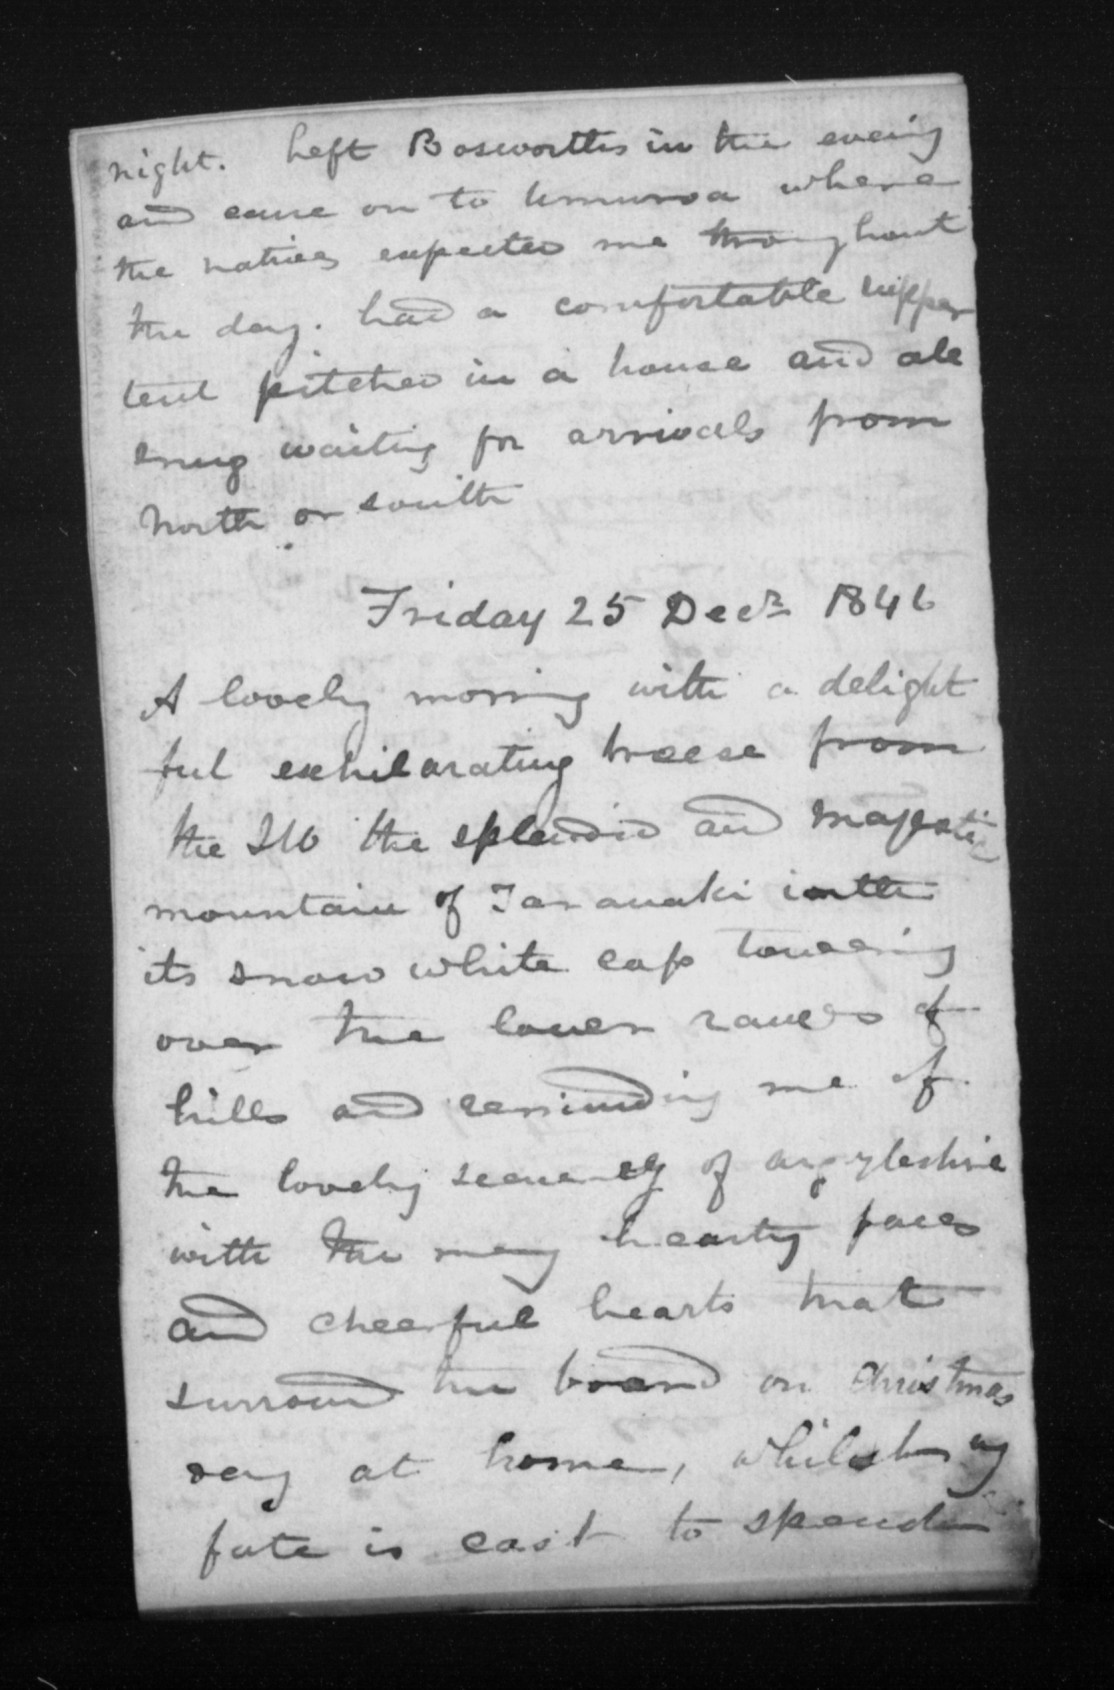 night. Left Bosworths in the evening
and came on to Umuroa where
the natives expected me throughout
the day. had a comfortable supper
tent pitched in a house and all
snug waiting for arrivals from
North or south
Friday 25 Decr 1846
A lovely morning with a delight
ful exhilarating breese from
the SW the splendid and majestic
mountain of Taranaki with
its snow white cap towering
over the lower ranges of
hills and reminding me of
the lovely scenery of argyleshire
with the many hearty faces
and cheerful hearts that
surround the board on Christmas
day at home, whilst my
fate is cast to spend